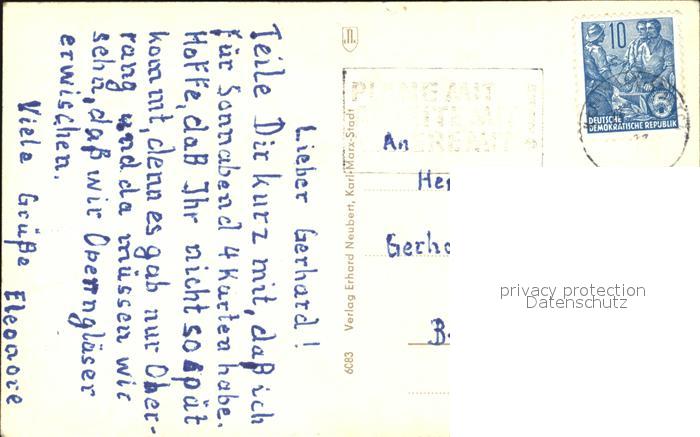 Lieber Gerhard!
Teile Dir kurz mit, daß ich
für Sonnabend 4 Karten habe.
Hoffe, daß Ihr nicht so spät
kommt, denn es gab nur Ober-
rang und da müssen wir
sehn, daß wir Opernngläser
erwischen.
Viele Grüße Eleonore
6083 Verlag Erhard Neubert, Karl-Marx-Stadt
10
DEUTSCHE
DEMOKRATISCHE REPUBLIK
PLANE MIT
An
Her
Gerha
B
privacy protection
Datenschutz